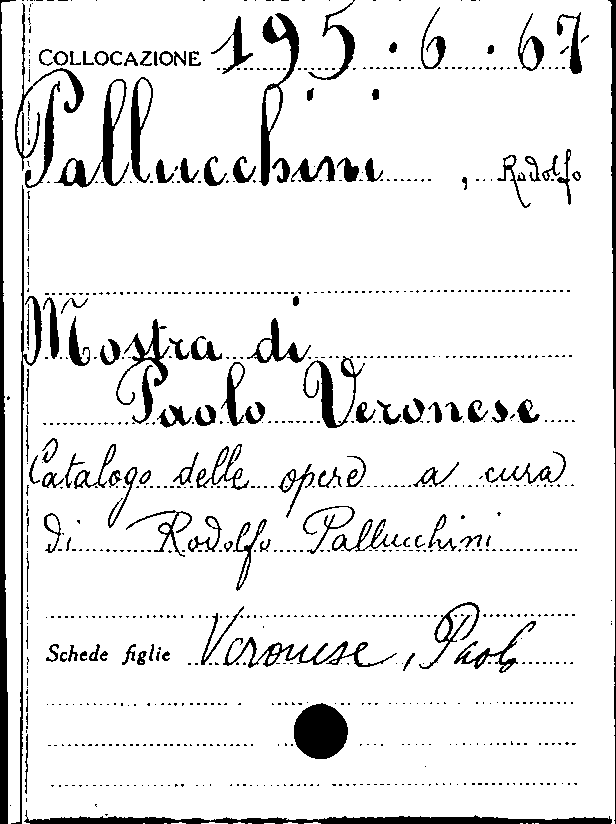 COLLOCAZIONE 195.6.67
Pallucchini, Rodolfo
Mostra di
Paolo Veronese
Catalogo delle opere a cura
di Rodolfo Pallucchini
Schede figlie Veronese, Paolo